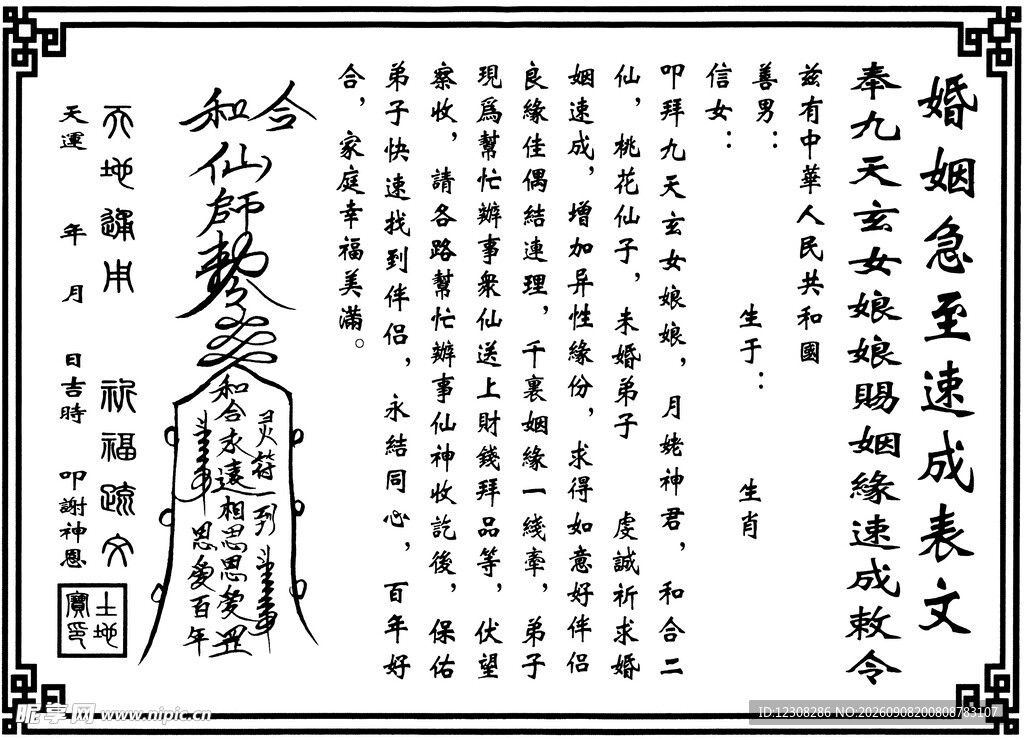 婚姻急至速成表文
奉九天玄女娘娘賜姻緣速成敕令
兹有中華人民共和國
善男：　生于：　生肖
信女：
叩拜九天玄女娘娘，月姥神君，和合二
仙，桃花仙子，未婚弟子　虔誠祈求婚
姻速成，增加异性緣份，求得如意好伴侣
良緣佳偶結連理，千裏姻緣一綫牽，弟子
現爲幫忙辦事衆仙送上財錢拜品等，伏望
察收，請各路幫忙辦事仙神收訖後，保佑
弟子快速找到伴侣，永結同心，百年好
合，家庭幸福美滿。
和合
仙師敕令
灵符一到
和合永遠相思思愛
思愛百年
天地通用　祈福疏文
天運　年　月　日吉時　叩謝神恩
土地寶印
昵享网 www.nipic.cn
ID:12308286 NO:20260908200808783107